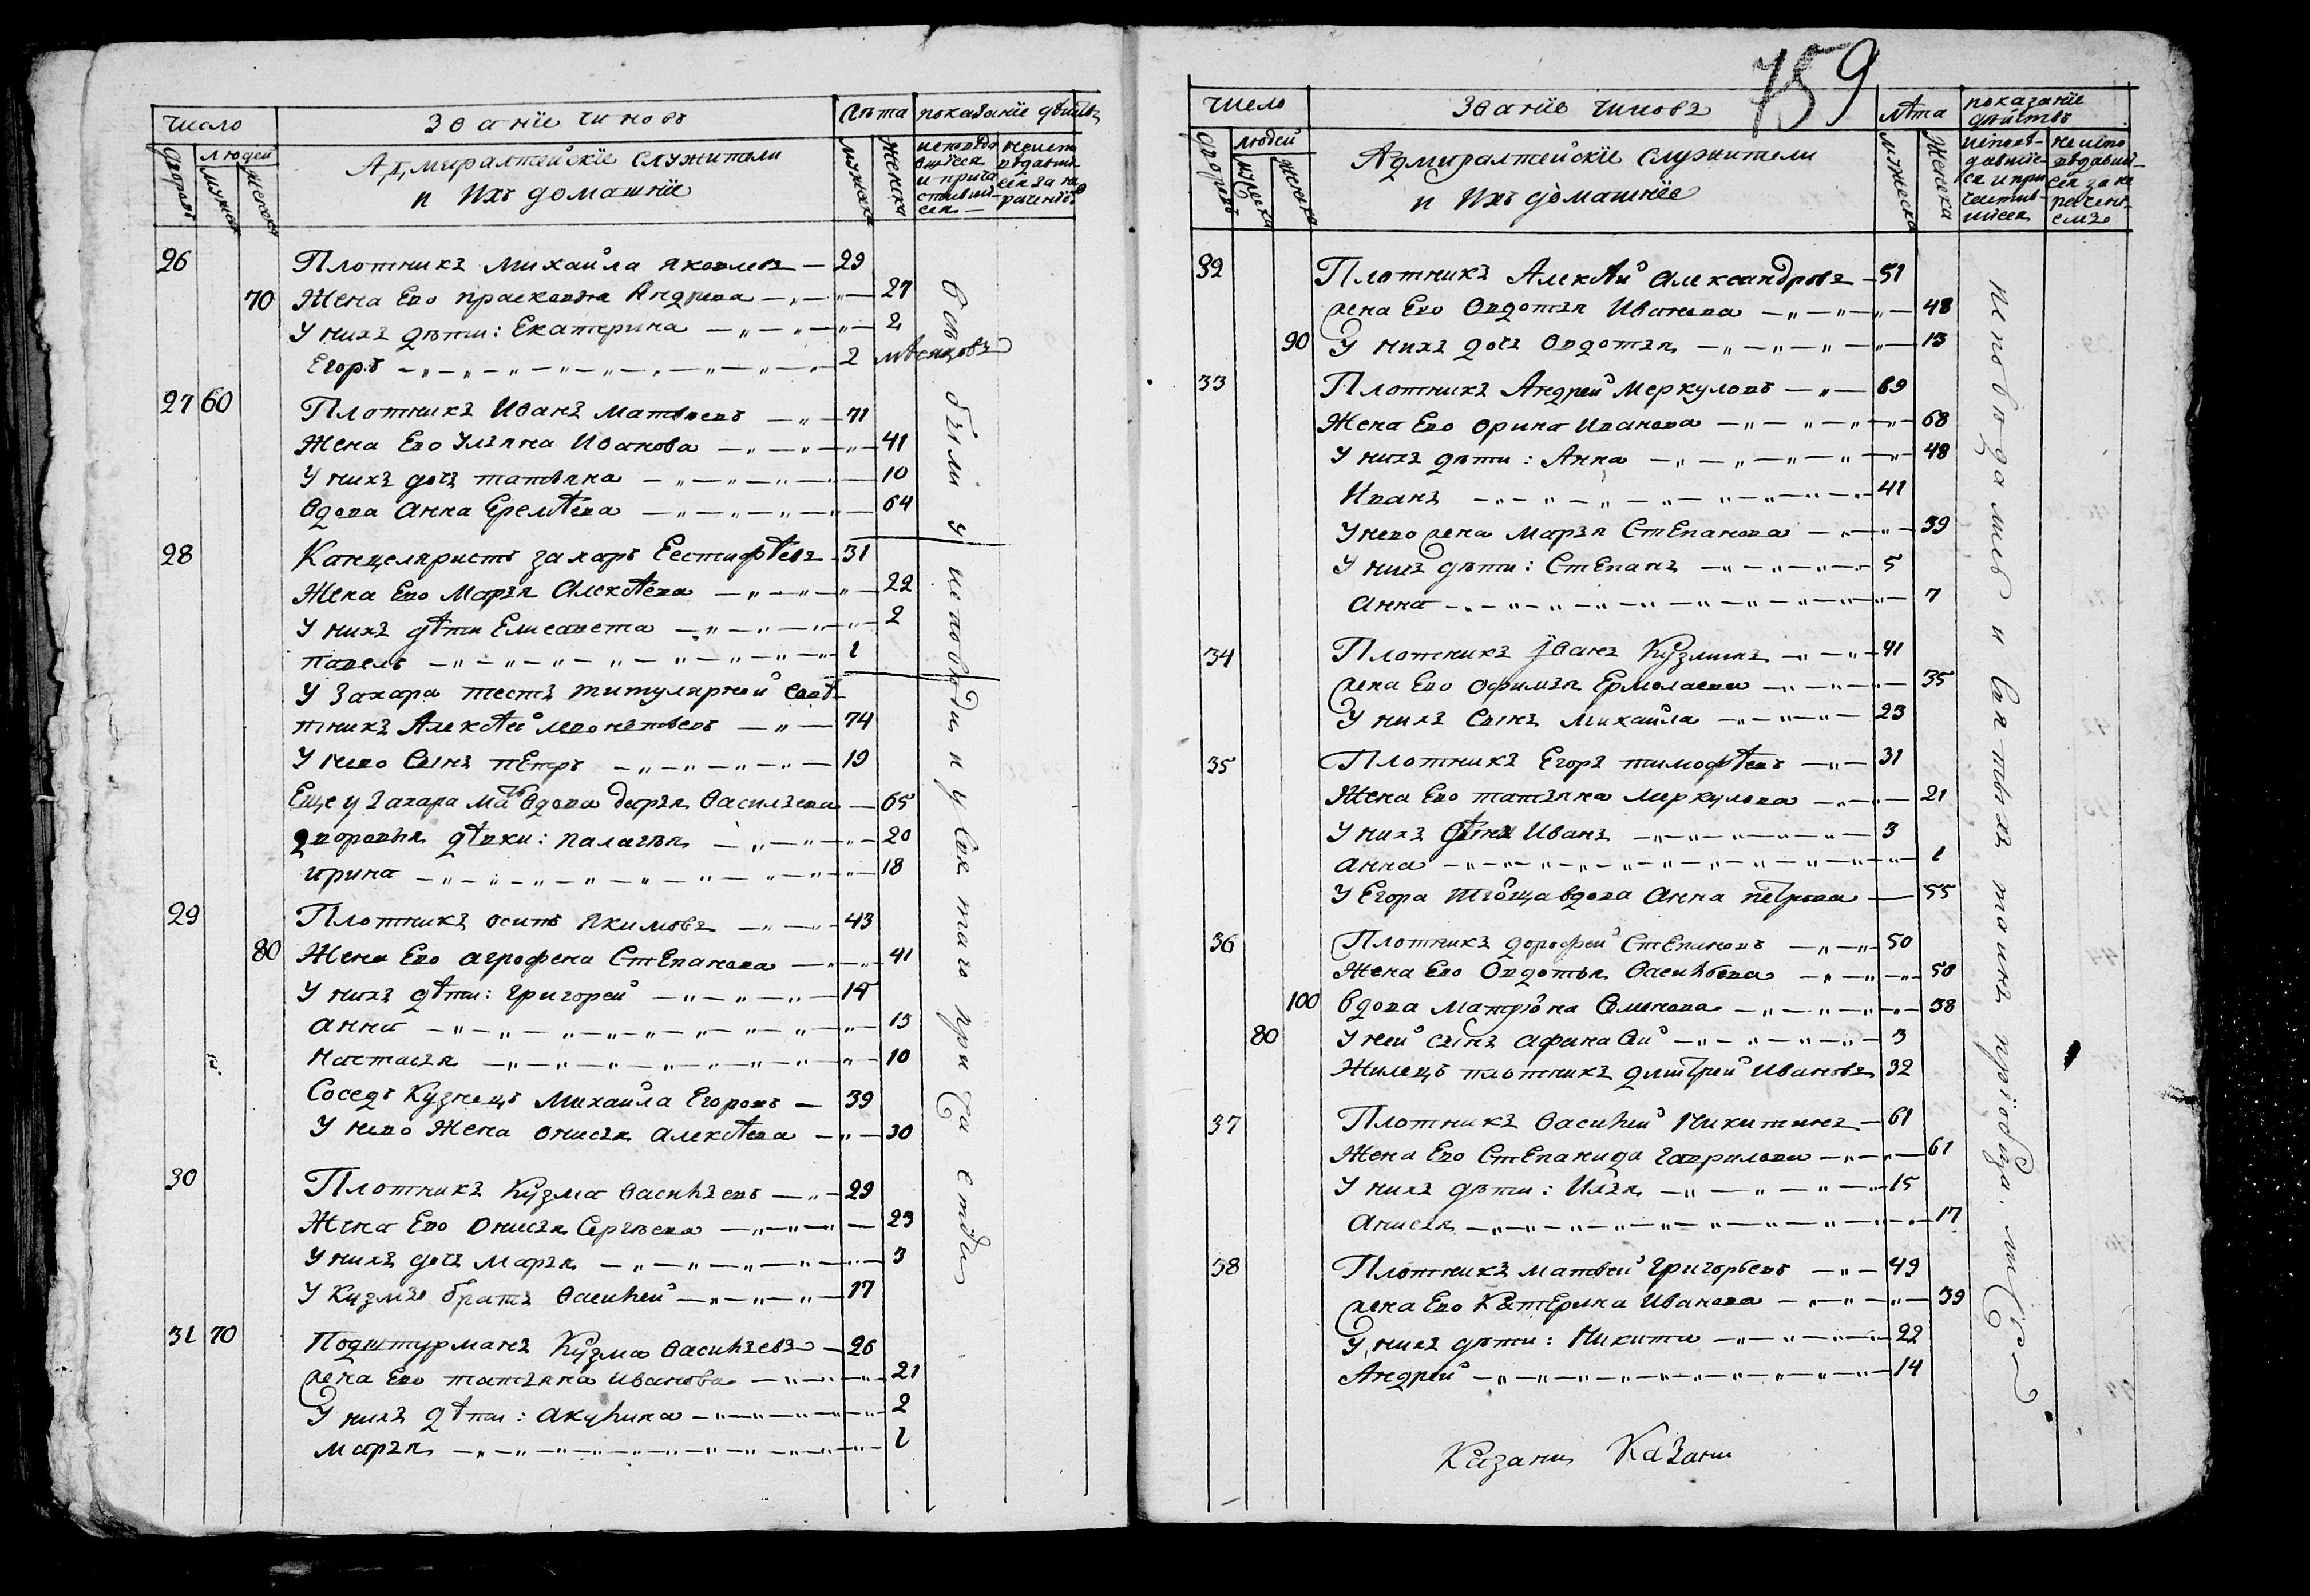 Число Званїе Чиновъ Лѣта показанїе дѣйствъ
дворовъ людей мужеска женска Адмиралтейскїе служители мужеска женска
и Ихъ домашнїе
исповѣдавшїеся и причастившїися
неисповѣдавшїися за нерачениѣмъ
26 Плотникъ Михайла Яковлевъ 29
70 Жена Ево прасковья Андреева 27
У нихъ дѣти: Екатерина 2
Егоръ 2 мѣсяцовъ
27 60 Плотникъ Иванъ Матвѣевъ 71
Жена Ево Ульяна Иванова 41
У нихъ дочь татьяна 10
Вдова Анна Еремѣева 64
28 Канцеляристъ Захаръ Еестифѣевъ 31
Жена Ево Марья Алексѣева 22
У нихъ дѣти Елисавета 2
павелъ 1
У Захара тесть титулярной совѣ
тникъ Алексѣй Леонтьевъ 74
У нево Сынъ пЕтръ 19
Еще у Захара мать вдова дарья Васильева 65
дворовыя дѣвки: палагѣя 20
ирина 18
29 Плотникъ осипъ Якимовъ 43
80 Жена Ево агрофена СтЕпанова 41
У нихъ дѣти: Григорей 14
анна 13
настасья 10
Соседъ Кузнецъ Михайла Егоровъ 39
У нево Жена онисья алексѣева 30
30 Плотникъ Кузма Васильевъ 29
Жена Ево онисья Сергѣева 23
У нихъ дочь марья 3
У Кузмы братъ Василей 17
31 70 Подштурманъ Кузма Васильевъ 26
жена Ево татьяна иванова 21
У нихъ дѣти: акулина 2
марья 1
всѣ были у исповѣди и у святаго причастїя
759
Число Званїе Чиновъ лѣта показанїе дѣйствъ
дворовъ людей мужеска женска Адмиралтейскїе служители мужеска женска
и Ихъ домашнїе
исповѣдавшїеся и причастившїися
неисповѣдавшїися за нерачениемъ
32 Плотникъ Алексѣй Александровъ 51
жена Ево Овдотья Иванова 48
90 У нихъ дочь Овдотья 13
33 Плотникъ Андрей Меркуловъ 69
Жена Ево орина Иванова 68
У нихъ дѣти: Анна 48
Иванъ 41
У нево жена марья СтЕпанова 39
У нихъ дѣти: СтЕпанъ 5
анна 7
34 Плотникъ Їванъ Кузминъ 41
жена Ево офимья Ермолаева 35
У нихъ Сынъ Михайла 23
35 Плотникъ Егоръ тимофѣевъ 31
Жена Ево татьяна меркулова 21
У нихъ дѣти Иванъ 3
анна 1
У Егора тїоща вдова Анна петрова 55
36 Плотникъ дорофей СтЕпановъ 50
Жена Ево Овдотья Васильева 50
100 вдова матрїона Семенова 38
80 У ней сынъ афанасѣй 3
Жилецъ плотникъ дмитрей Ивановъ 32
37 Плотникъ Василей Никитинъ 61
Жена Ево СтЕпанида гаврилова 61
У нихъ дѣти: Илья 15
анисья 17
38 Плотникъ матвей Григорьевъ 49
жена Ево КатЕрина Иванова 39
У нихъ дѣти: Никита 22
Андрей 14
исповѣданиѣ и святыхъ таинъ прїобща
Казани Казани